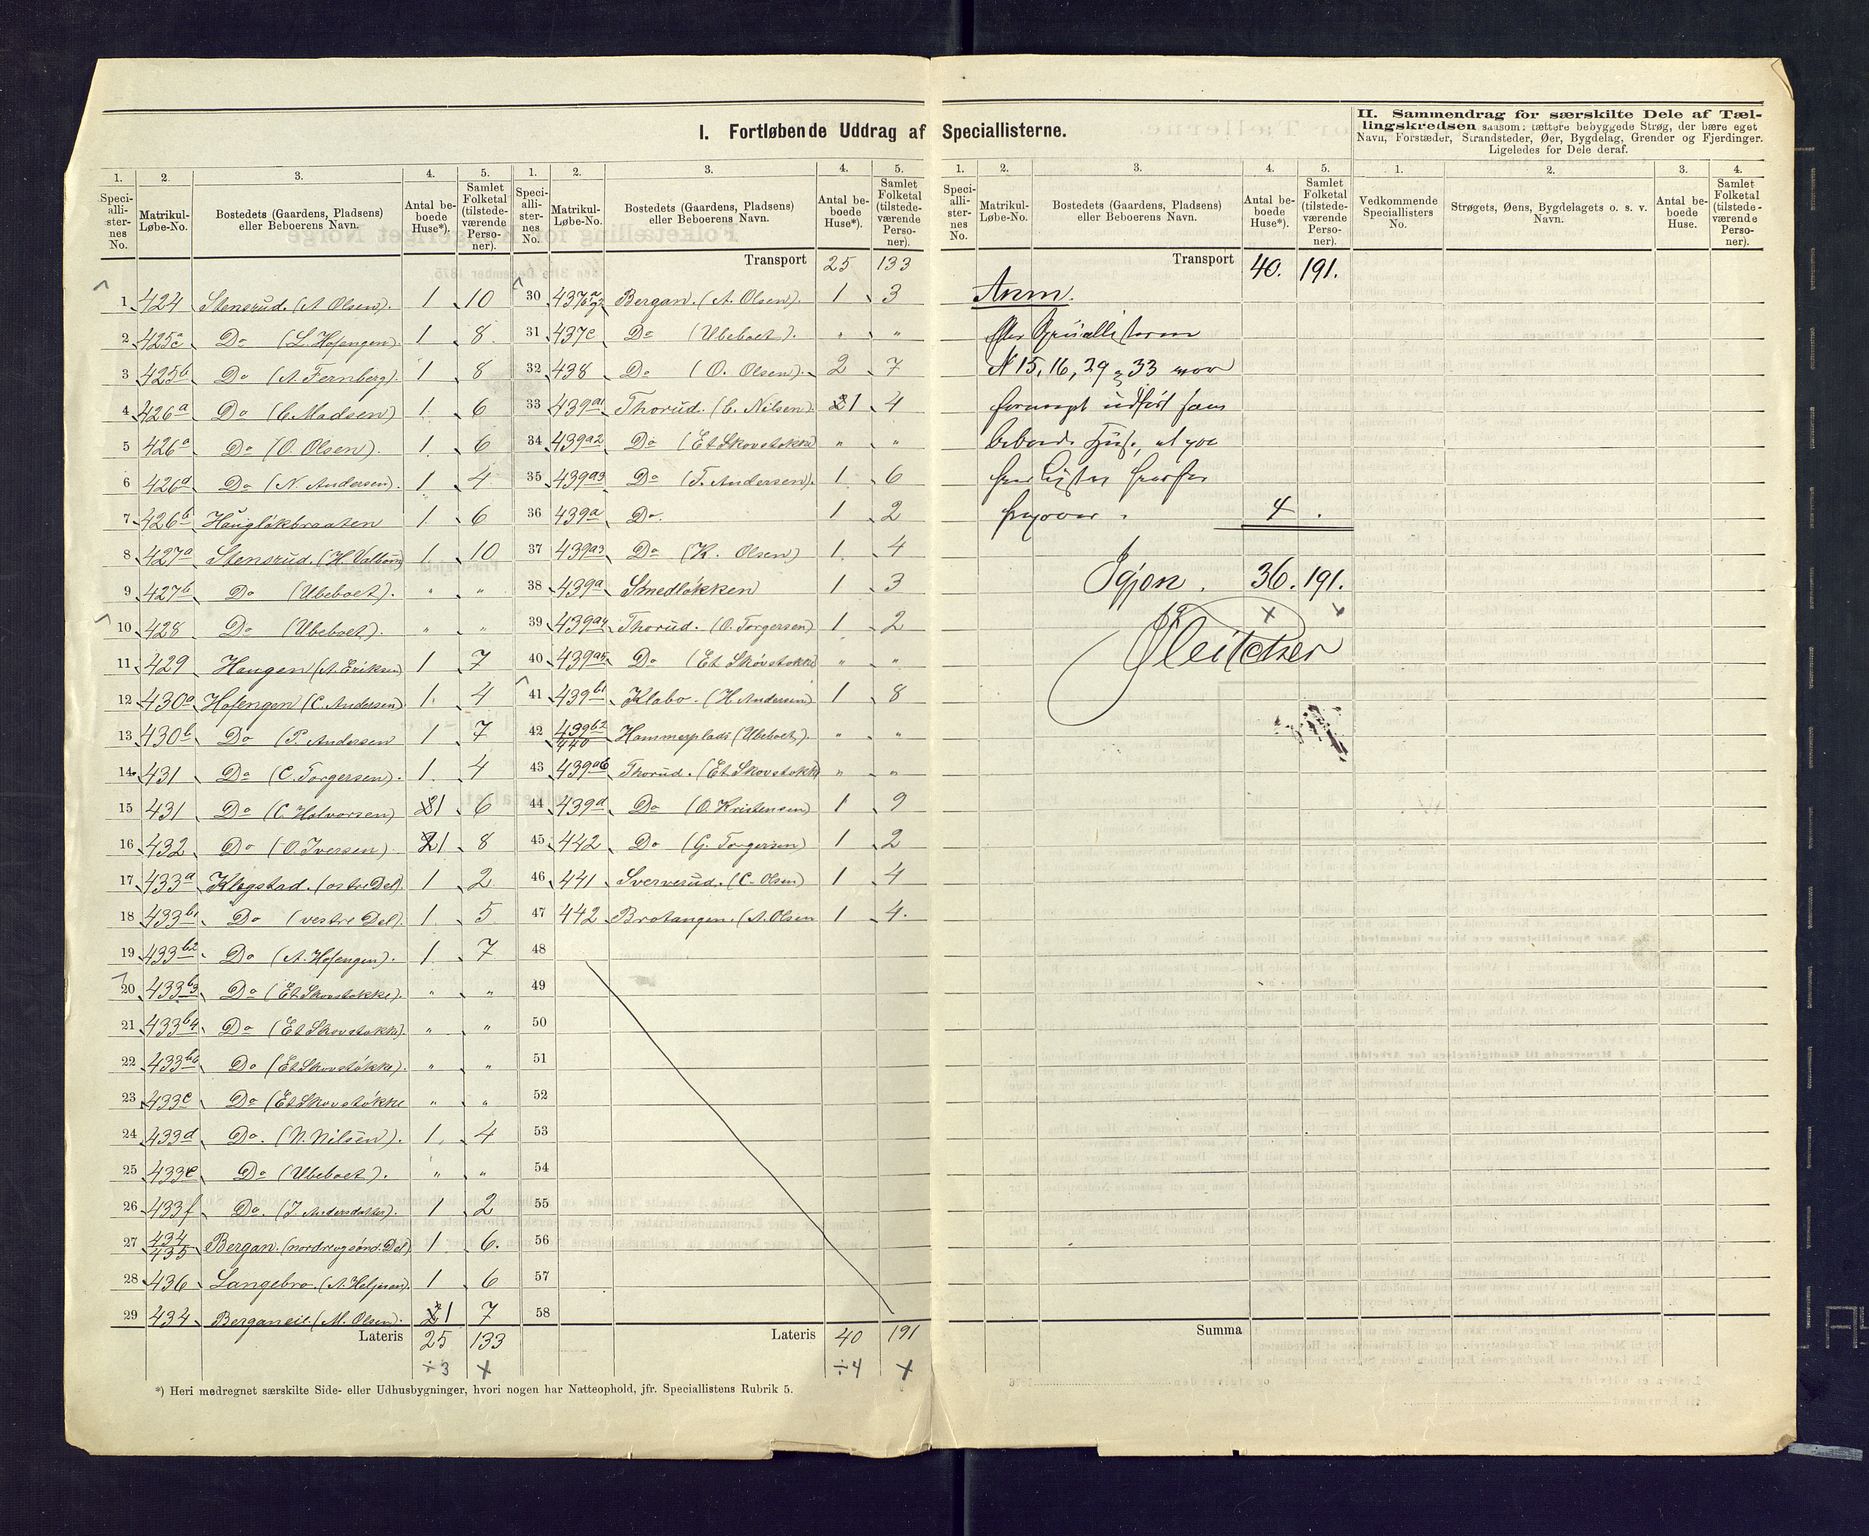 I. Fortløbende Uddrag af Speciallisterne.
II. Sammendrag for særskilte Dele af Tællingskredsen saasom: tættere bebyggede Strøg, der bære eget
Navn, Forstæder, Strandsteder, Øer, Bygdelag, Grender og Fjerdinger.
Ligeledes for Dele deraf.
1. 2. 3. 4. 5. 1. 2. 3. 4. 5.
Speciallisternes No. Matrikul-Løbe-No. Bostedets (Gaardens, Pladsens) eller Beboerens Navn. Antal beboede Huse*). Samlet Folketal (tilstedeværende Personer).
1 424 Stensrud. (A. Olsen). 1 10
2 425a Do (L. Hofengen). 1 8
3 425b Do (A. Fernberg). 1 8
4 426a Do (C. Madsen) 1 6
5 426a Do (O. Olsen). 1 6
6 426d Do (N. Andersen). 1 4
7 426b Hauglökbraaten 1 6
8 427a Stensrud. (H. Valborn) 1 10
9 427b Do (Ubeboet). " "
10 428 Do (Ubeboet). " "
11 429 Haugen (A. Eriksen) 1 7
12 430a Hofengen (C. Andersen) 1 4
13 430b Do (P. Andersen 1 7
14 431 Do (C. Torgersen). 1 4
15 431 Do (C. Halvorsen) 1 6
16 432 Do (O. Iversen). 1 8
17 433a Klegstad. (ostre Del). 1 2
18 433b1 Do (vestre Del) 1 5
19 433b2 Do (A. Hofengen). 1 7
20 433b3 Do (Et Skovstokke). " "
21 433b4 Do (Et Skovstokke). " "
22 433b6 Do (Et Skovstökke). " "
23 433c Do (Et Skovstökke " "
24 433d Do. (N. Nilsen). 1 4
25 433e Do (Ubeboet). " "
26 433f Do. (J. Andersdatter). 1 2
27 434/435 Bergan. (nordre og sönd. Del) 1 6.
28 436 Langebro. (A. Heljesen). 1 6
29 434 Berganeie. (M. Olsen). 1 7
Lateris 25 133
÷3 x
Transport 25 133
30 437 Bergan. (A. Olsen). 1 3
31 437c Do (Ubeboet). " "
32 438 Do (O. Olsen). 2 7
33 439a1 Thorud. (C. Nilsen). 1 4
34 439a2 Do (Et Skovstokke) " "
35 439a3 Do (T. Andersen). 1 6
36 439a Do. 1 2
37 439a3 Do (K. Olsen) 1 4
38 439a Smedlökken 1 3
39 439a4 Thorud. (O. Torgersen) 1 2
40 439a5 Do (Et Skovstokke) " "
41 439b1 Klabo. (H. Andersen) 1 8
42 439b2/440 Hammerplads (Ubeboet) " "
43 439a6 Thorud. (Et Skovstokke " "
44 439d Do (O. Kristensen) 1 9
45 442 Do (G. Torgersen) 1 2
46 441 Sververud. (C. Olsen) 1 4
47 442 Brotangen. (A. Olsen 1 4.
48
49
50
51
52
53
54
55
56
57
58
Lateris 40 191
÷4 x
*) Heri medregnet særskilte Side- eller Udhusbygninger, hvori nogen har Natteophold, jfr. Speciallistens Rubrik 5.
1. 2. 3. 4. 5. 1. 2. 3. 4.
Speciallisternes No. Matrikul-Løbe-No. Bostedets (Gaardens, Pladsens) eller Beboerens Navn. Antal beboede Huse*). Samlet Folketal (tilstedeværende Personer).
Vedkommende Speciallisters No. Strøgets, Øens, Bygdelagets o. s. v. Navn. Antal beboede Huse. Samlet Folketal (tilstedeværende Personer).
Transport 40. 191.
Anm.
N 15, 16, 29 33
4.
Igjen. 36. 191.
x x
Summa